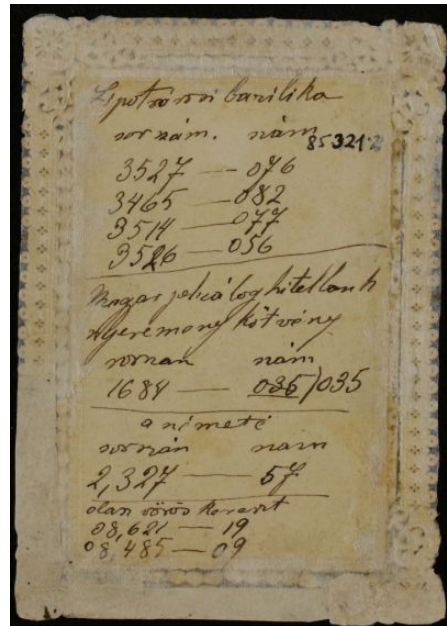 Lipotvárosi bazilika
sorzám. nám
85321.2
3527 — 076
3465 — 082
3514 — 077
3526 — 056
Magar jelzálog hitelbank
nyeremény kötvény
sorzan nám
1684 — 035)035
a németé
sorzán nam
2,327 — 57
olan vörös kereszt
08,621 — 19
08,485 — 09